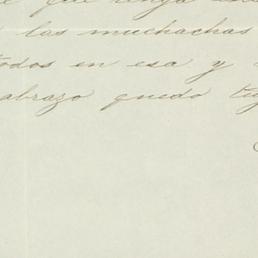 e que tenga
las muchachas
todos en esa y
abrazo quedo tu